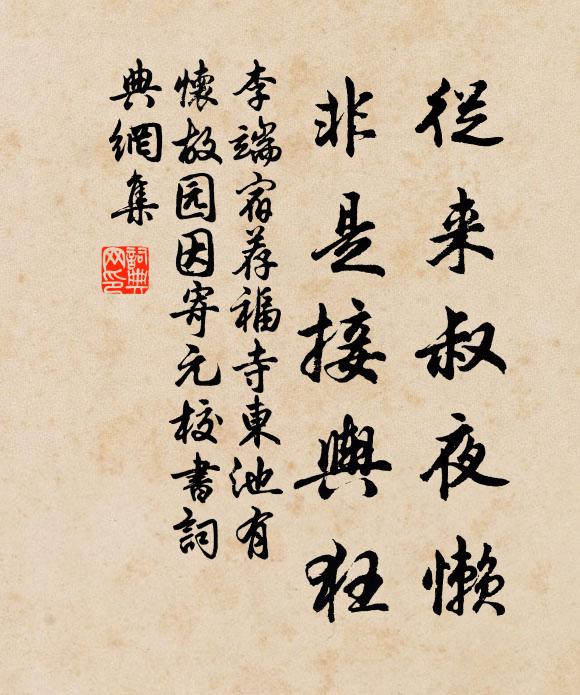 從来叔夜懒
非是接輿狂
李端宿荐福寺東池有
懷故园因寄元校書詞
典網集
詞典
网印